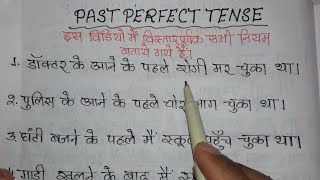 PAST PERFECT TENSE
इस विडियो में विस्तारपूर्वक सभी नियम
बताये गये हैं।
1. डॉक्टर के आने के पहले रोगी मर चुका था।
2. पुलिस के आने के पहले चोर भाग चुका था।
3. घंटी बजने के पहले मैं स्कूल पहुँच चुका था।
4. गाड़ी खुलने के बाद मैं